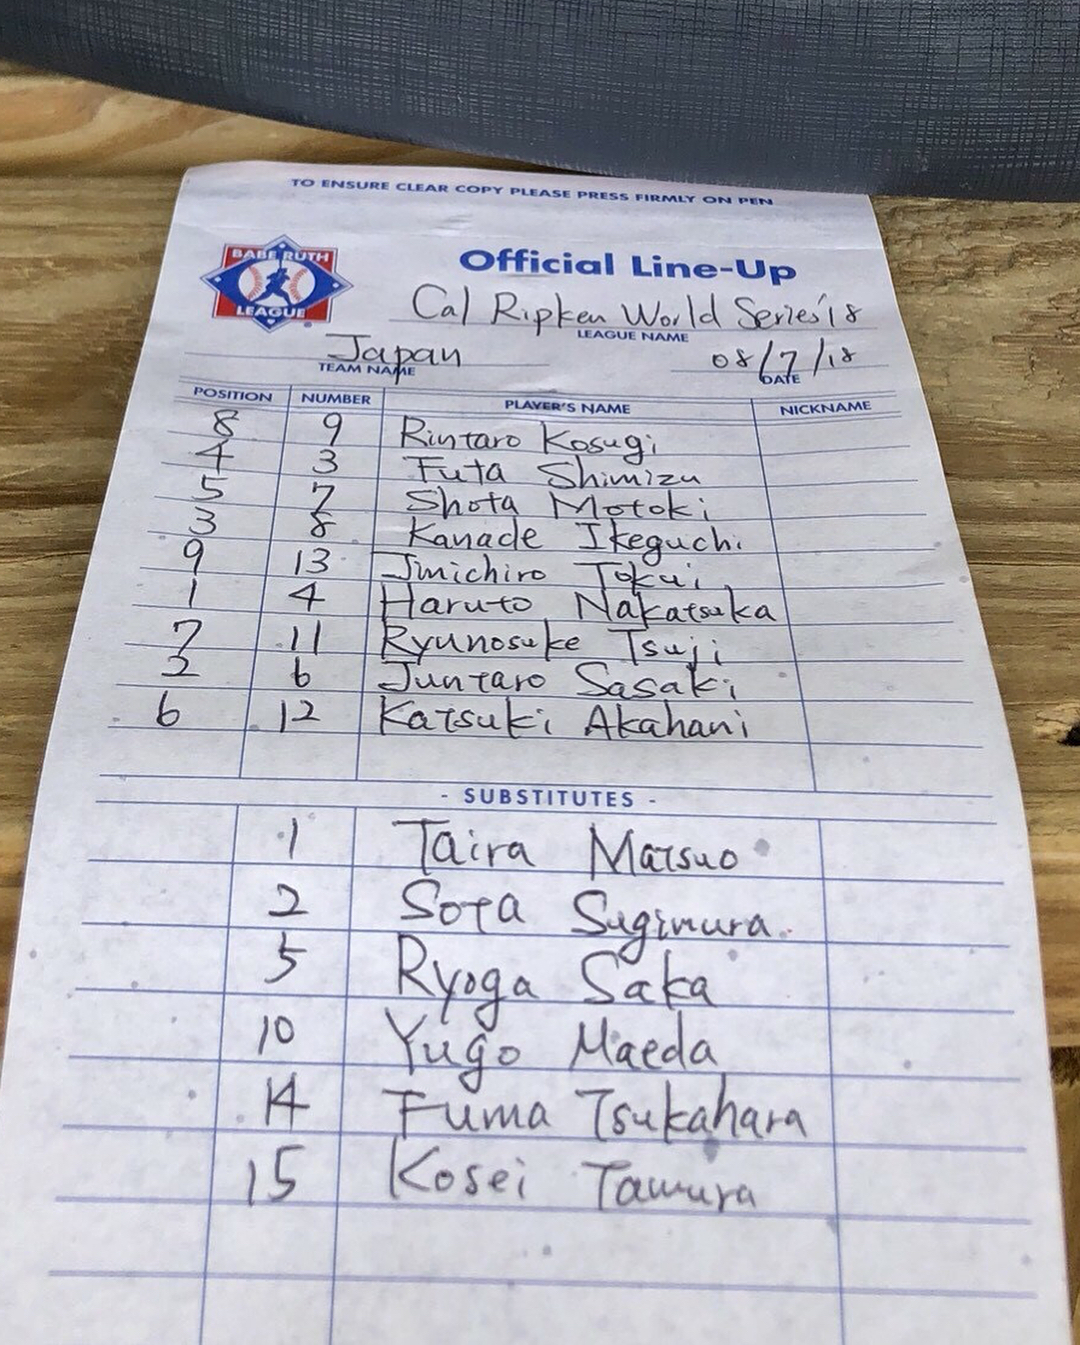 TO ENSURE CLEAR COPY PLEASE PRESS FIRMLY ON PEN
BABE RUTH
LEAGUE
Official Line-Up
Cal Ripken World Series '18
LEAGUE NAME
Japan 08/7/18
TEAM NAME DATE
POSITION NUMBER PLAYER'S NAME NICKNAME
8 9 Rintaro Kosugi
4 3 Futa Shimizu
5 7 Shota Motoki
3 8 Kanade Ikeguchi
9 13 Jmichiro Tokui
1 4 Haruto Nakatsuka
7 11 Ryunosuke Tsuji
2 6 Juntaro Sasaki
6 12 Katsuki Akahani
- SUBSTITUTES -
1 Taira Matsuo
2 Sota Sugimura
5 Ryoga Saka
10 Yugo Maeda
14 Fuma Tsukahara
15 Kosei Tamura